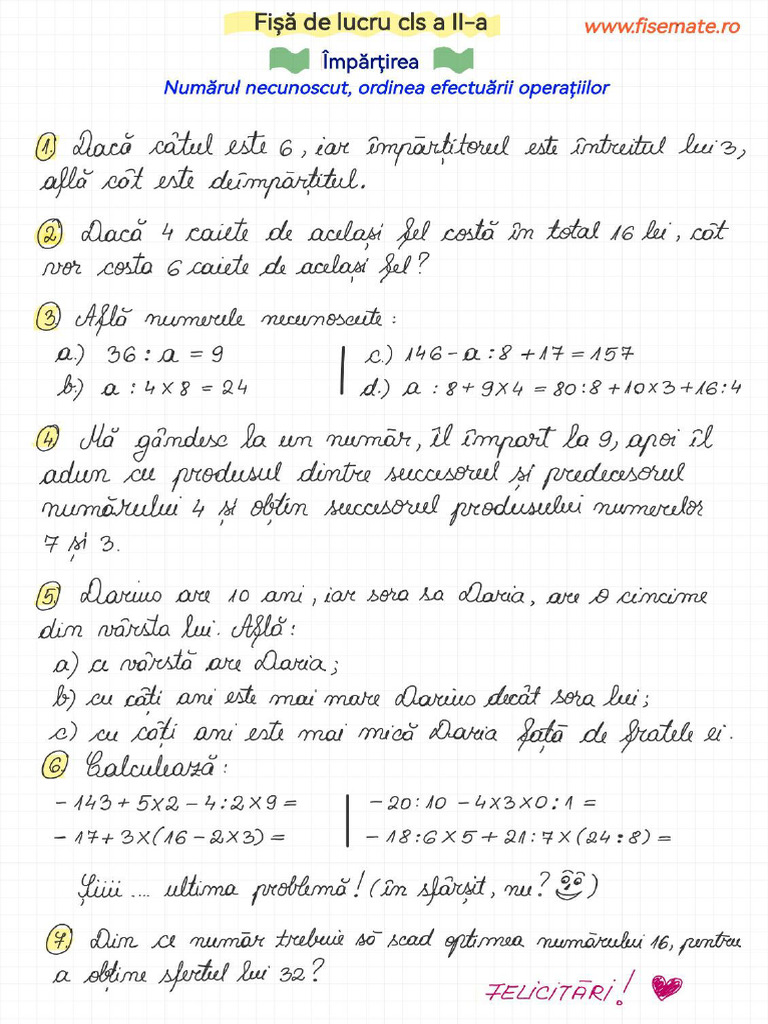 Fișă de lucru cls a II-a
www.fisemate.ro
Împărțirea
Numărul necunoscut, ordinea efectuării operațiilor
1. Dacă câtul este 6, iar împărțitorul este întreitul lui 3,
află cât este deîmpărțitul.
2. Dacă 4 caiete de același fel costă în total 16 lei, cât
vor costa 6 caiete de același fel?
3. Află numerele necunoscute:
a.) 36 : a = 9
c.) 146 - a : 8 + 17 = 157
b.) a : 4 x 8 = 24
d.) a : 8 + 9 x 4 = 80 : 8 + 10 x 3 + 16 : 4
4. Mă gândesc la un număr, îl împart la 9, apoi îl
adun cu produsul dintre succesorul și predecesorul
numărului 4 și obțin succesorul produsului numerelor
7 și 3.
5. Darius are 10 ani, iar sora sa Daria, are o cincime
din vârsta lui. Află:
a) ce vârstă are Daria;
b) cu câți ani este mai mare Darius decât sora lui;
c) cu câți ani este mai mică Daria față de fratele ei.
6. Calculează:
- 143 + 5 x 2 - 4 : 2 x 9 =
- 20 : 10 - 4 x 3 x 0 : 1 =
- 17 + 3 x (16 - 2 x 3) =
- 18 : 6 x 5 + 21 : 7 x (24 : 8) =
Șiiii .... ultima problemă! (în sfârșit, nu? )
7. Din ce număr trebuie să scad optimea numărului 16, pentru
a obține sfertul lui 32?
FELICITĂRI!